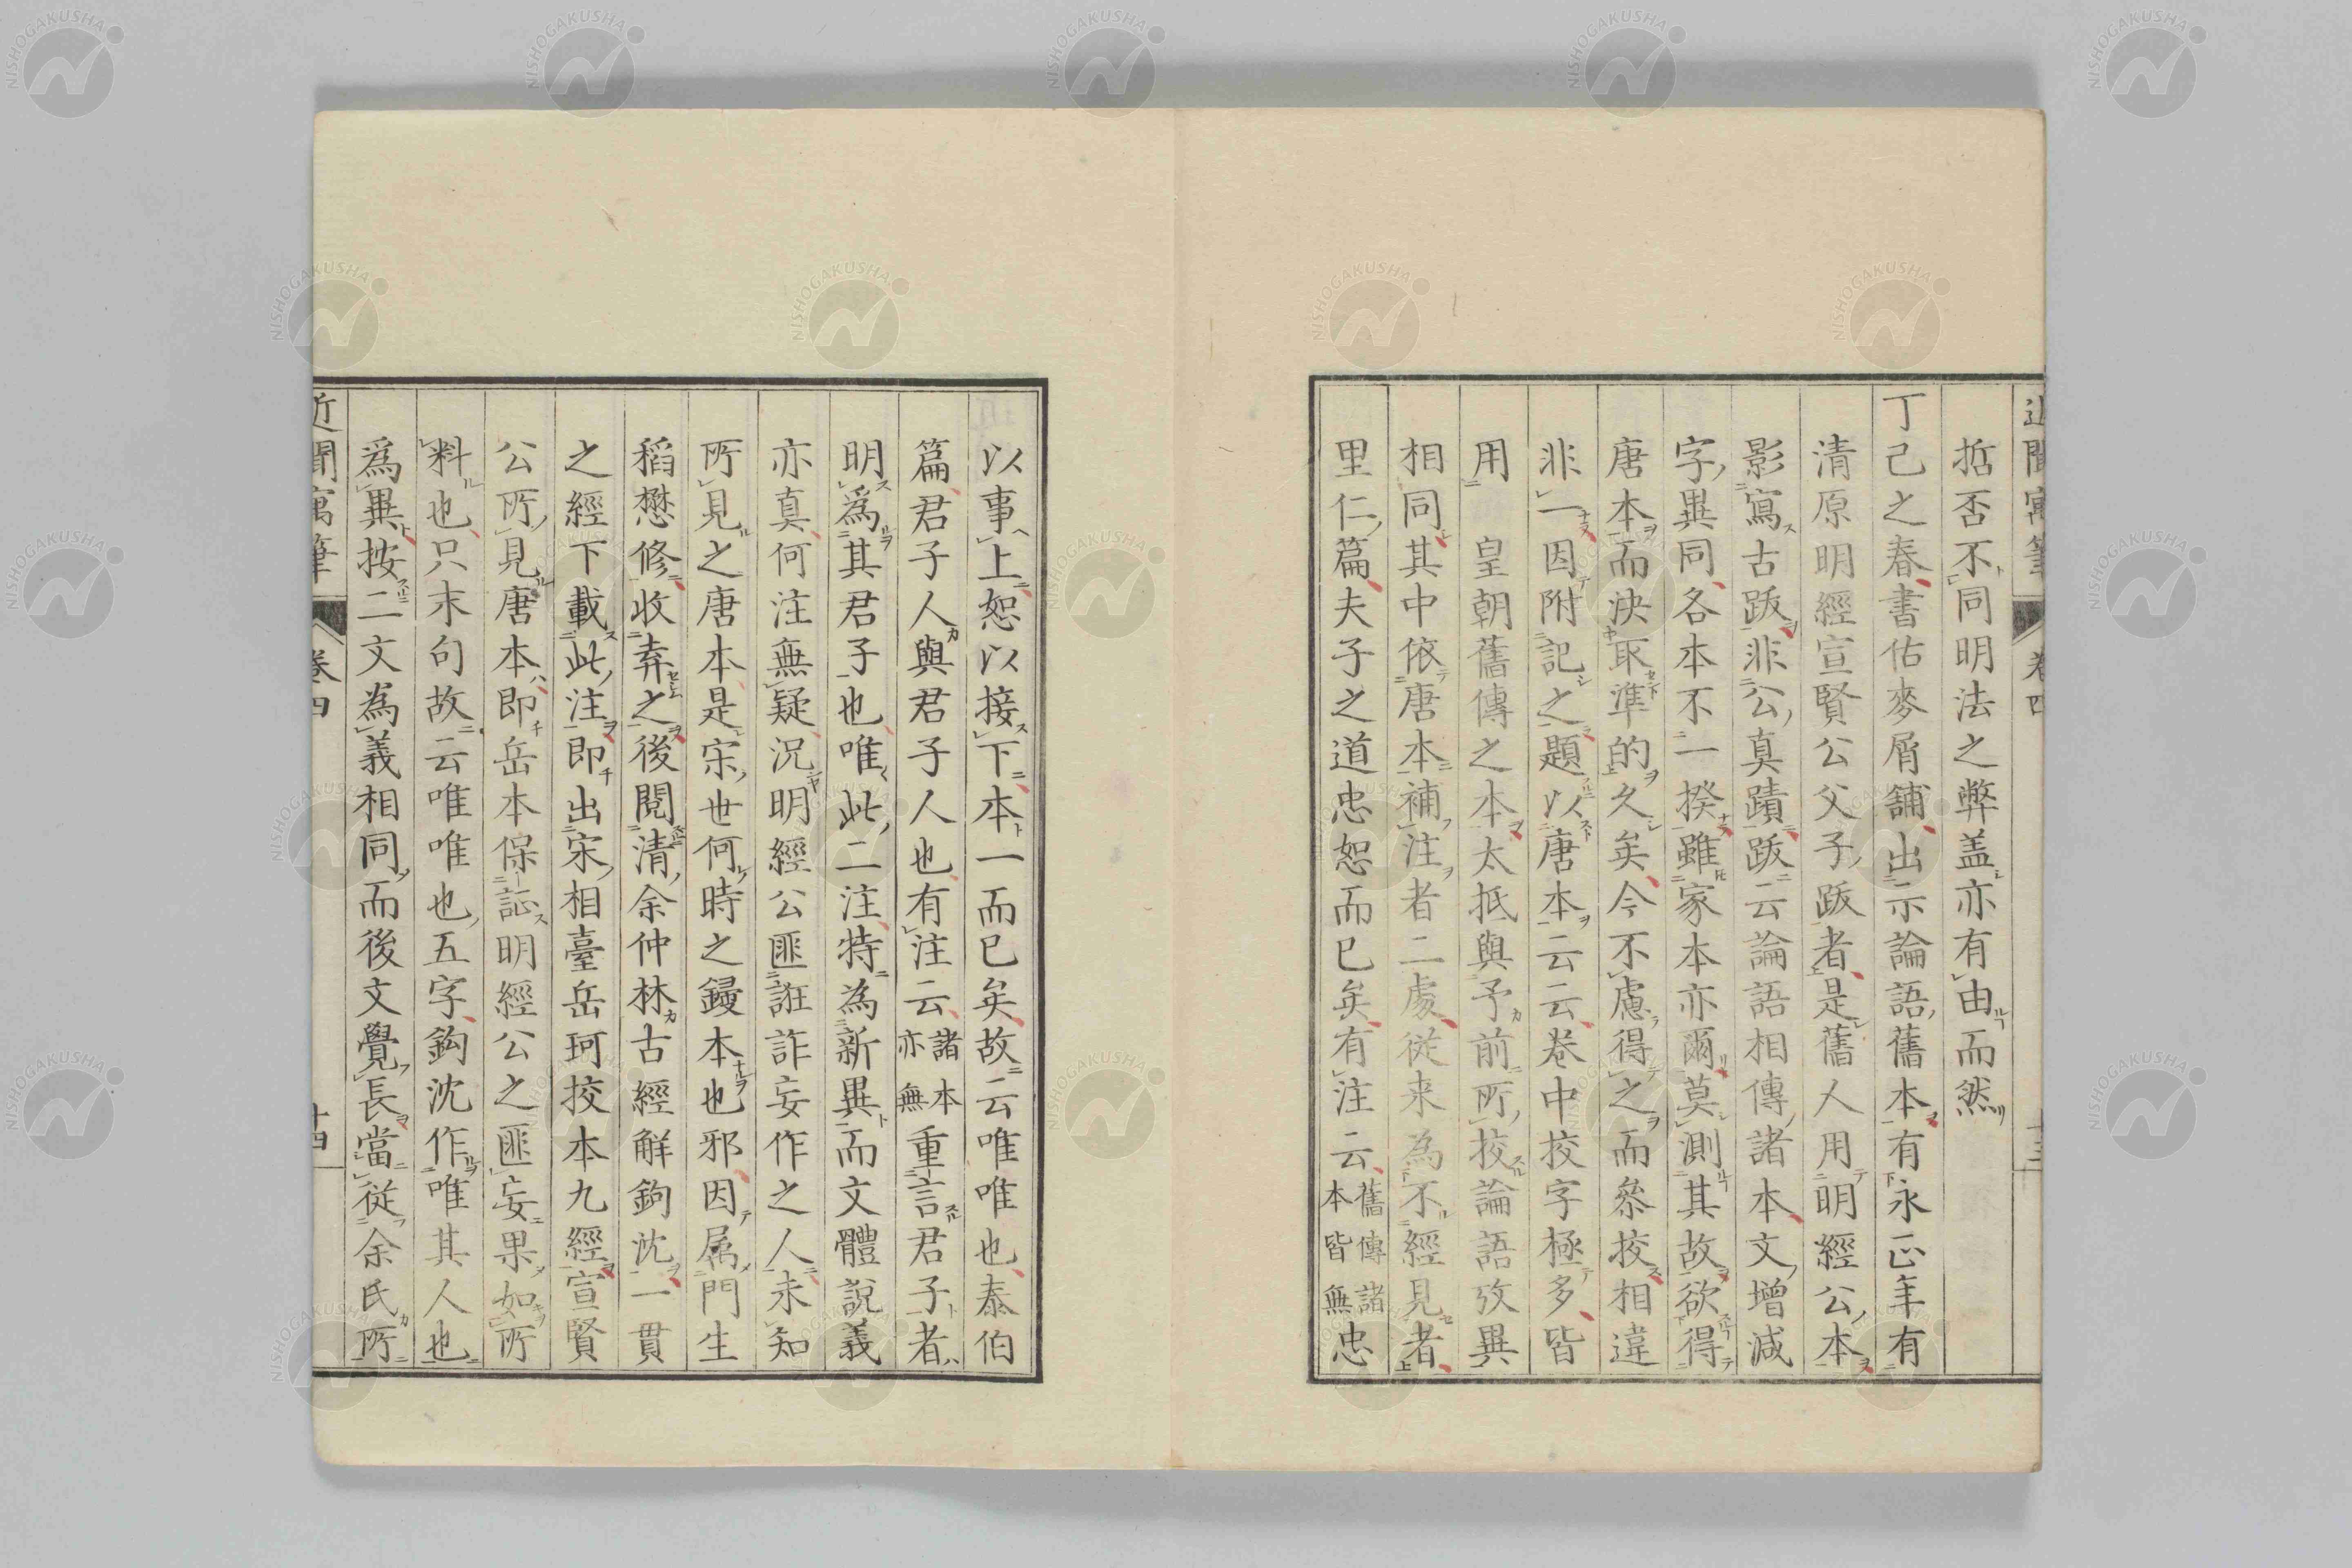 近聞寓筆 卷四 十三
悊否不同明法之弊盖亦有由而然
丁己之春書估麥屑舖出示論語舊本有永正年有
清原明經宣賢公父子跋者是舊人用明經公本
影寫古跋非公真蹟跋云論語相傳諸本文増減
字異同各本不一揆雖家本亦爾莫測其故欲得
唐本而決取準的久矣今不慮得之而叅挍相違
非一因附記之題以唐本云云卷中校字極多皆
用 皇朝舊傳之本太抵與予前所挍論語攷異
相同其中依唐本補注者二處從来為不經見者
里仁篇夫子之道忠恕而已矣有注云舊傳諸本皆無忠
以事上恕以接下本一而已矣故云唯唯也泰伯
篇君子人與君子人也有注云諸本亦無重言君子者
明為其君子也唯此二注特為新異而文體說義
亦真何注無疑況明經公匪誑詐妄作之人未知
所見之唐本是宋世何時之鏝本也邪因属門生
稻懋修收弆之後閱清余仲林古經解鉤沈一貫
之經下載此注即出宋相臺岳珂挍本九經宣賢
公所見唐本即岳本保證明經公之匪妄果如所
料也只末句故云唯唯也五字鈎沈作唯其人也
為異按二文為義相同而後文覺長當從余氏所
近聞寓筆 卷四 十四
NISHOGAKUSHA